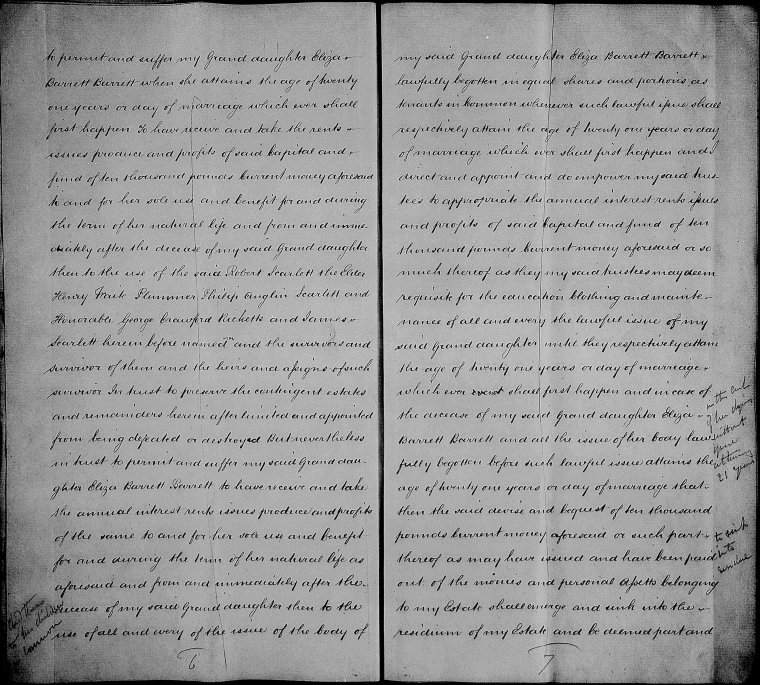 to permit and suffer my Grand daughter Eliza
Barrett Barrett when she attains the age of twenty
one years or day of marriage which ever shall
first happen To have receive and take the rents
issues produce and profits of said Capital and
fund of ten thousand pounds Current money aforesaid
to and for her sole use and benefit for and during
the term of her natural life and from and imme
diately after the decease of my said Grand daughter
then to the use of the said Robert Scarlett the Elder
Henry Wait Plummer Philip Anglin Scarlett and
Honorable George Crawford Ricketts and James
Scarlett herein before named and the survivors and
survivor of them and the heirs and assigns of such
survivor In trust to preserve the contingent estates
and remainders herein after limited and appointed
from being defeated or destroyed But nevertheless
in trust to permit and suffer my said Grand dau-
ghter Eliza Barrett Barrett to have receive and take
the annual interest rents issues produce and profits
of the same to and for her sole use and benefit
for and during the term of her natural life as
aforesaid and from and immediately after the
decease of my said Grand daughter then to the
use of all and every of the issue of the body of
And then
to her children
in common
6
my said Grand daughter Eliza Barrett Barrett
lawfully begotten in equal shares and portions as
tenants in Common whenever such lawful issue shall
respectively attain the age of twenty one years or day
of marriage which ever shall first happen and I
direct and appoint and do empower my said trus-
tees to appropriate the annual interest rents issues
and profits of said Capital and fund of ten
thousand pounds Current money aforesaid or so
much thereof as they my said trustees may deem
requisit for the education Clothing and mainte-
nance of all and every the lawful issue of my
said Grand daughter until they respectively attain
the age of twenty one years or day of marriage
which ever event shall first happen and in case of
the decease of my said Grand daughter Eliza
Barrett Barrett and all the issue of her body law
fully begotten before such lawful issue attains the
age of twenty one years or day of marriage that
then the said devise and bequest of ten thousand
pounds Current money aforesaid or such part
thereof as may have issued and have been paid
out of the monies and personal Assetts belonging
to my Estate shall emerge and sink into the
residium of my Estate and be deemed part and
in the event
of her dying
without
issue
attain
21 years
to sink
into
residue
7